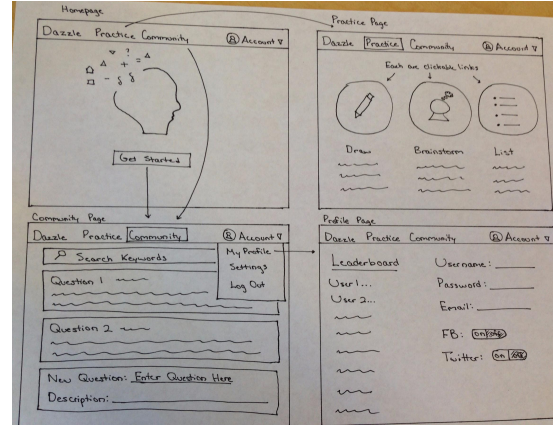 Homepage
Dazzle Practice Community Account
? 
+ = 
-
Get Started
Practice Page
Dazzle Practice Community Account
Each are clickable links
Draw Brainstorm List
Community Page
Dazzle Practice Community Account
Search Keywords
My Profile
Settings
Log Out
Question 1
Question 2
New Question: Enter Question Here
Description:
Profile Page
Dazzle Practice Community Account
Leaderboard
User 1...
User 2...
Username:
Password:
Email:
FB: on off
Twitter: on off